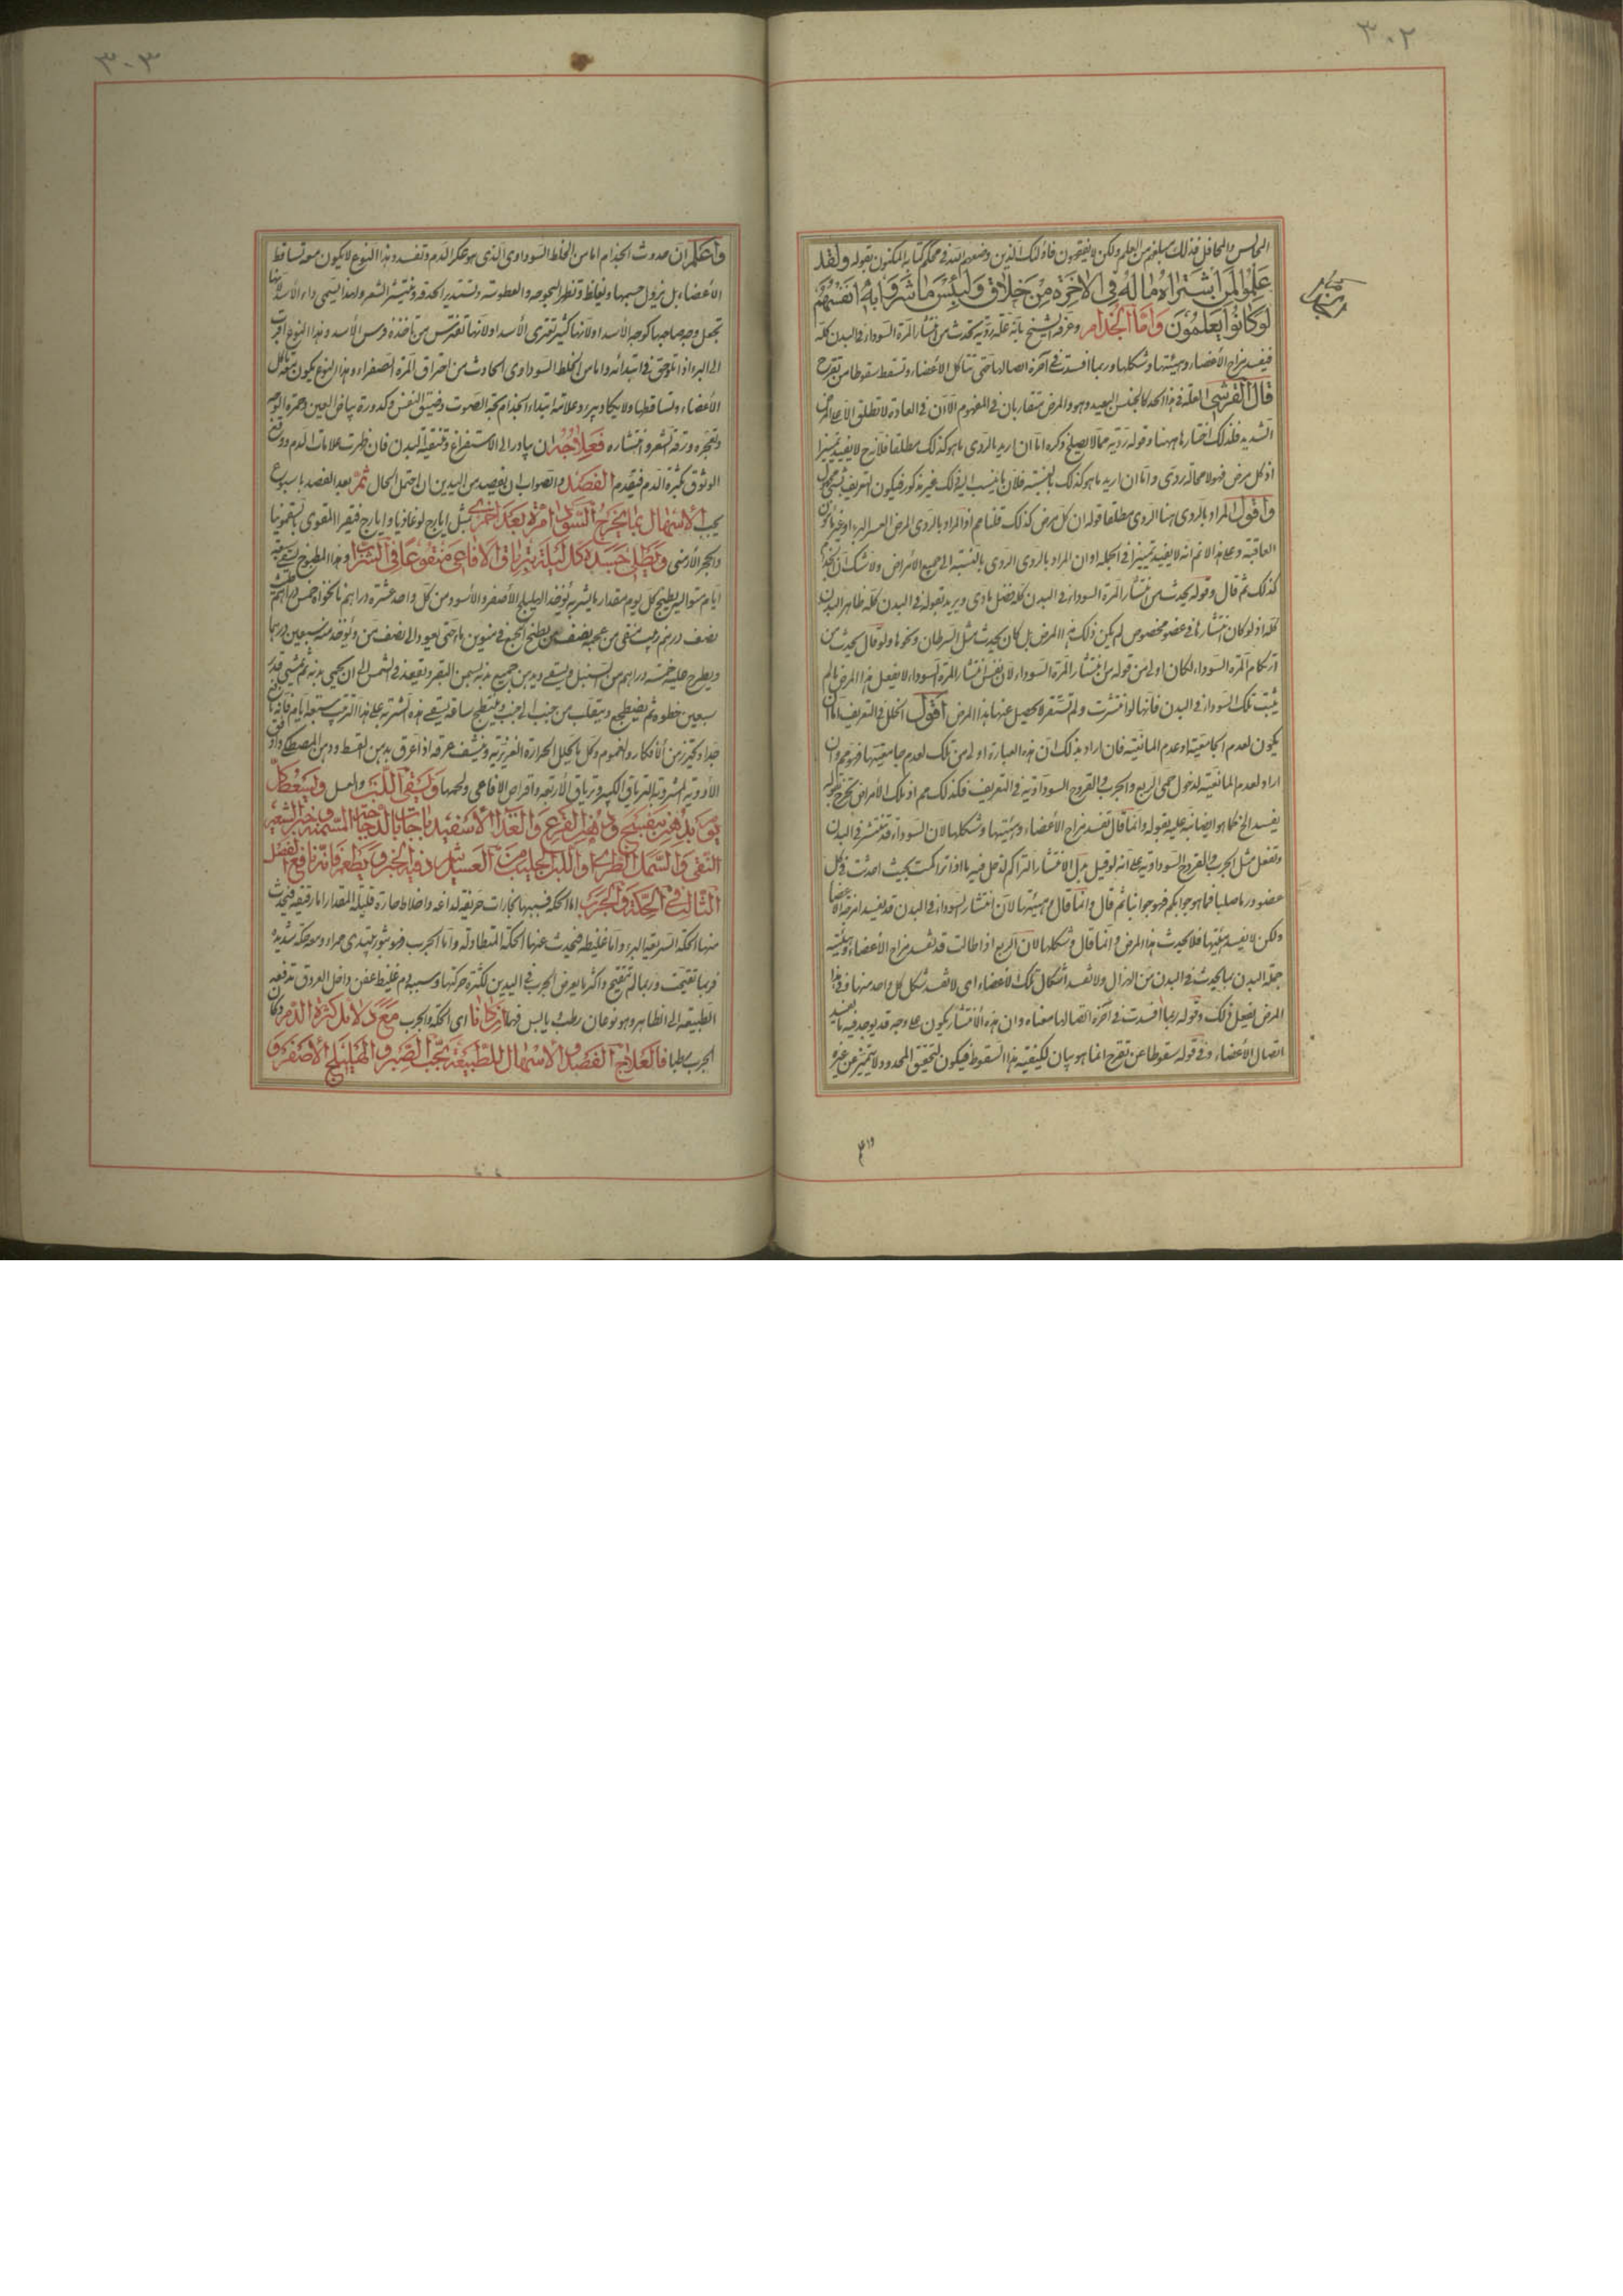 ٣٠٢
المجالس والمحافل فذلك مبلغهم من العلم ولكن لا يفقهون فاولئك الذين وضعهم الله في محكم كتابه المكنون بقوله ولقد
علموا لمن اشتراه ما له في الاخرة من خلاق ولبئس ما شروا به انفسهم
لو كانوا يعلمون واما الجذام وعرفه الشيخ بانه علة ردية تحدث من انتشار المرة السوداء في البدن كله
فيفسد مزاج الأعضاء وهيئتها وشكلها وربما افسدت في آخره اتصالها حتى تتاكل الاعضاء وتسقط سقوطا من تقرح
قال القرشي العلة في هذا الحد كالجنس البعيد وهو والمرض متقاربان في المفهوم الا ان في العادة لا تطلق الا على المرض
الشديد فلذلك اختارها ههنا وقوله ردية مما لا يصلح ذكره اما ان اريد بالردى ما هو كذلك مطلقا فلانه ح لا يفيد تميزا
اذ كل مرض فهو لا محالة ردى واما ان اريد ما هو كذلك بالنسبة فلان ما ينسب اليه ذلك غير مذكور فيكون التعريف بشئ مجهول
واقول المراد بالردى هنا الردى مطلقا قوله ان كل مرض كذلك قلنا مم اذ المراد بالردى المرض العسر البرء او غير مأمون
العاقبة وعلى هذا لا نم انه لا يفيد تميزا في الجملة او ان المراد بالردى الردى بالنسبة الى جميع الأمراض ولا شك ان الجذام
كذلك ثم قال وقوله يحدث من انتشار المرة السوداء في البدن كله فصل مادى ويريد بقوله في البدن كله ظاهر البدن
كله اذ لو كان انتشارها في عضو مخصوص لم يكن ذلك هذا المرض بل كان يحدث مثل السرطان ونحوها ولو قال يحدث من
ارتكام المرة السوداء لكان اولى من قوله من انتشار المرة السوداء لان نفس انتشار المرة السوداء لا يفعل هذا المرض ما لم
يثبت تلك السوداء في البدن فانها لو انتشرت ولم تستقر لا يحصل عنها هذا المرض اقول الخلل في التعريف اما ان
يكون لعدم الجامعية او عدم المانعية فان اراد بذلك ان هذه العبارة اولى من تلك لعدم جامعيتها فهو مم وان
اراد لعدم المانعية لدخول حمى الربع والجرب والقروح السوداوية في التعريف فكذلك مم اذ تلك الأمراض تخرج بقوله
يفسد الخ كما هو ايضا نبه عليه بقوله وانما قال تفسد مزاج الأعضاء وهيئتها وشكلها لان السوداء قد تنتشر في البدن
وتفعل مثل الجرب والقروح السوداوية على انه لو قيل بدل الانتشار التراكم لدخل فيه ما اذا تراكمت بحيث احدثت في كل
عضو ورما صلبا فما هو جوابكم فهو جوابنا ثم قال وانما قال وهيئتها لان انتشار السوداء في البدن قد يفسد امزجة الأعضاء
ولكن لا يفسد هيئتها فلا يحدث هذا المرض وانما قال وشكلها لان الربع اذا طالت قد تفسد مزاج الأعضاء وهيئته
جملة البدن بما يحدث في البدن من الهزال ولا تفسد اشكال تلك الأعضاء اى لا تفسد شكل كل واحد منها وهذا
المرض يفعل ذلك وقوله ربما افسدت في آخره اتصالها معناه وان هذه الانتشار يكون على وجه قد يوجد فيه ما يفسد
اتصال الأعضاء وفي قوله سقوطا عن تقرح انما هو بيان لكيفية هذا السقوط فيكون لتحقق المحدود ولا يتميز عن غيره
٣٠٣
واعلم ان حدوث الجذام اما من الخلط السوداوي الذي هو عكر الدم وتفسد وهذا النوع لا يكون معه تساقط
الأعضاء بل يزول حسها وتغلظ وتظهر البحوحة والعطوسة وتستدير الحدقة وينتثر الشعر ولهذا يسمى داء الأسد لانها
تجعل وجه صاحبها كوجه الأسد او لانها كثيرا تعترى الأسد او لانها تفترس من تاخذه فرس الأسد وهذا النوع اقرب
الى البرء اذا تلوحق في ابتدائه واما من الخلط السوداوى الحادث من احتراق المرة الصفراء وهذا النوع يكون معه تآكل
الأعضاء وتساقطها ولا يكاد يبرء وعلامة ابتداء الجذام بحة الصوت وضيق النفس وكدورة بياض العين وحمرة الوجه
وتفجره ورقة الشعر وانتشاره فعلاجه ان يبادر الى الاستفراغ وتنقية البدن فان ظهرت علامات الدم ووقع
الوثوق بكثرة الدم فيقدم الفصد والصواب ان يفصد من اليدين ان احتمل الحال ثم بعد الفصد باسبوع
يجب الاسهال بما يخرج السوداء مرة بعد اخرى مثل ايارج لوغاذيا وايارج فيقرا المقوى بالسقمونيا
والحجر الأرمني ويطلى جسده كل ليلة بترياق الافاعي منقوعا في الشراب وهذا المطبوخ يسقى سبعة
ايام متوالية يطبخ كل يوم مقدار ما يشربه يؤخذ الهليلج الأصفر والأسود من كل واحد عشرة دراهم نانخواه خمس دراهم
نصف درهم زبيب منقى من عجمه نصف من يطبخ الجميع في منوين ماء حتى يعود الى نصف من ويؤخذ منه سبعين درهما
ويطرح عليه خمسة دراهم من السنبل ويسقى ويدهن جميع بدنه بسمن البقر ويقعد في الشمس الى ان يحمى بدنه ثم يمشى قدر
سبعين خطوة ثم يضطجع ويتقلب من جنب الى جنب وينبطح ساعة يسقى هذه الشربة على هذا الترتيب سبعة ايام فانه نافع
جدا وتحرز من الافكار والهموم وكل ما يحلل الحرارة الغريزية وينشف عرقه اذا عرق بدهن القسط ودهن المصطكى واوفق
الأدوية المشروبة الترياق الكبير وترياق الأربعة واقراص الافاعي ولحمها ويسقى اللبن والعسل ويسعط كل
يوم بدهن بنفسج ودهن القرع والغذاء الأسفيدباجات بالدجاجة المسمنة وخبز الشعير
النقى والسمك الطرى واللبن الحليب من العسل يثرد فيه الخبز ويطعم فانه نافع الفصل
الثالث في الحكة والجرب اما الحكة فسببها بخارات حريفة لداعة واخلاط حارة قليلة المقدار اما رقيقة فيحدث
منها الحكة السريعة البرء واما غليظة فيحدث عنها الحكة المتطاولة واما الجرب فهو بثور يبتدى حمراء ومعه حكة شديدة
فربما تقيحت وربما لم تتقيح واكثر ما يعرض الجرب في اليدين لكثرة حركتها وسببه دم غليظ عفن داخل العروق تدفعه
الطبيعة الى الظاهر وهو نوعان رطب ويابس فهما ان كانا اى الحكة والجرب مع دلائل كثرة الدم وكان
الجرب رطبا فالعلاج الفصد والاسهال للطبيعة بحب الصبر والهليلج الأصفر و